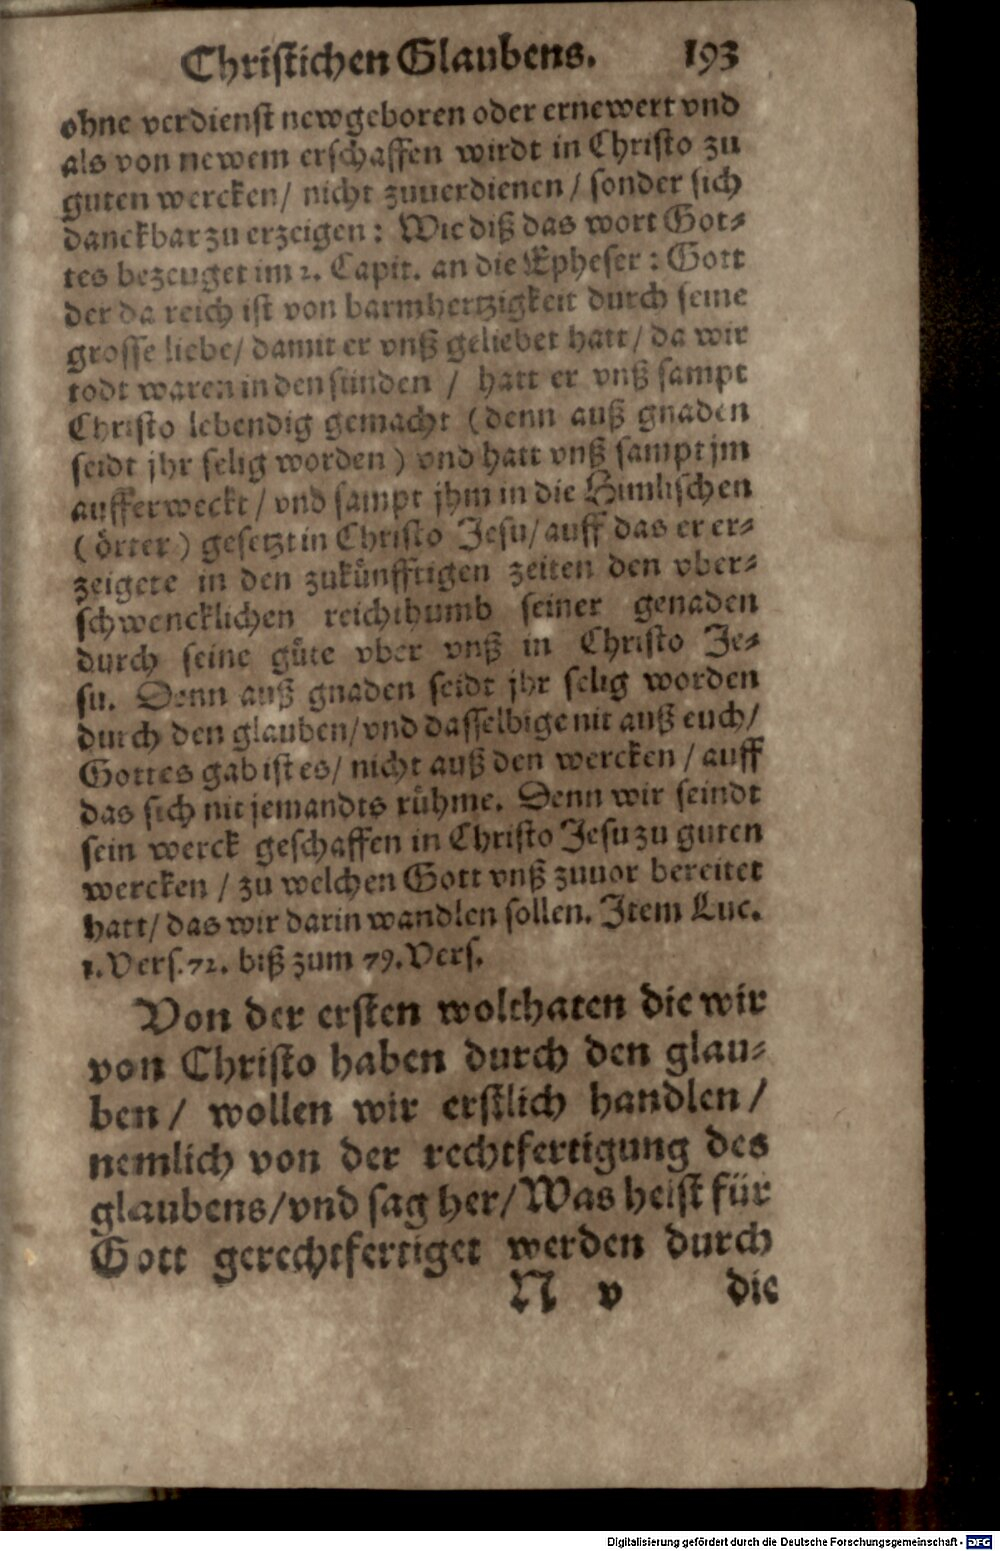 Christichen Glaubens. 193
ohne verdienst newgeboren oder ernewert vnd
als von newem erschaffen wirdt in Christo zu
guten wercken/ nicht zuuerdienen/ sonder sich
danckbar zu erzeigen: Wie diß das wort Got-
tes bezeuget im 2. Capit. an die Epheser: Gott
der da reich ist von barmhertzigkeit durch seine
grosse liebe/ damit er vnß geliebet hatt/ da wir
todt waren in den sünden / hatt er vnß sampt
Christo lebendig gemacht (denn auß gnaden
seidt jhr selig worden) vnd hatt vnß sampt jm
aufferweckt/ vnd sampt jhm in die Himlischen
(örter) gesetzt in Christo Jesu/ auff das er er-
zeigete in den zukünfftigen zeiten den vber-
schwencklichen reichthumb seiner genaden
durch seine güte vber vnß in Christo Je-
su. Denn auß gnaden seidt jhr selig worden
durch den glauben/ vnd dasselbige nit auß euch/
Gottes gab ist es/ nicht auß den wercken/ auff
das sich nit jemandts rühme. Denn wir seindt
sein werck geschaffen in Christo Jesu zu guten
wercken / zu welchen Gott vnß zuuor bereitet
hatt/ das wir darin wandlen sollen. Item Luc.
1. Vers. 72. biß zum 79. Vers.
Von der ersten wolthaten die wir
von Christo haben durch den glau-
ben/ wollen wir erstlich handlen/
nemlich von der rechtfertigung des
glaubens/ vnd sag her/ Was heist für
Gott gerechtfertiget werden durch
N v die
Digitalisierung gefördert durch die Deutsche Forschungsgemeinschaft - DFG